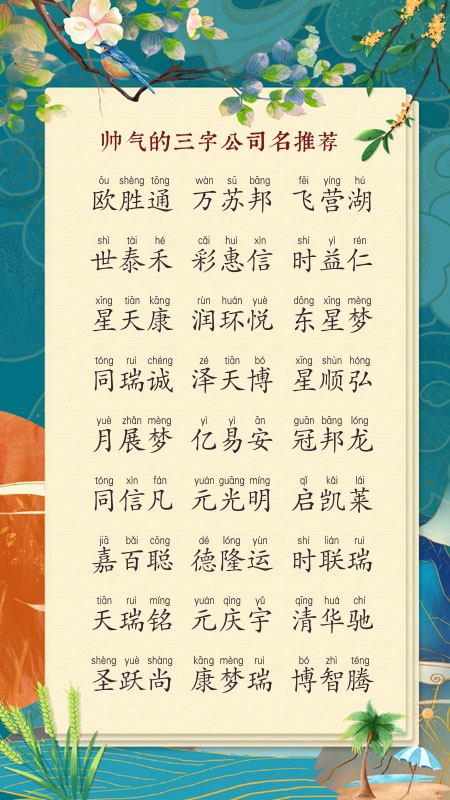 帅气的三字公司名推荐
ōu shèng tōng wàn sū bāng fēi yíng hú
欧胜通 万苏邦 飞营湖
shì tài hé cǎi huì xìn shí yì rén
世泰禾 彩惠信 时益仁
xīng tiān kāng rùn huán yuè dōng xīng mèng
星天康 润环悦 东星梦
tóng ruì chéng zé tiān bó xīng shùn hóng
同瑞诚 泽天博 星顺弘
yuè zhǎn mèng yì yì ān guān bāng lóng
月展梦 亿易安 冠邦龙
tóng xìn fán yuán guāng míng qǐ kǎi lái
同信凡 元光明 启凯莱
jiā bǎi cōng dé lóng yùn shí lián ruì
嘉百聪 德隆运 时联瑞
tiān ruì míng yuán qìng yǔ qīng huá chí
天瑞铭 元庆宇 清华驰
shèng yuè shàng kāng mèng ruì bó zhì téng
圣跃尚 康梦瑞 博智腾